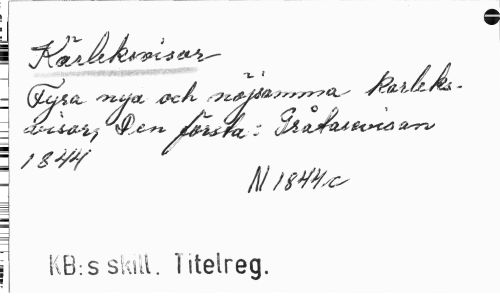 Kärleksvisor
Fyra nya och nöjsamma kärleks-
visor, Den första: Gråtarevisan
1844
N 1844c
KB:s skill. Titelreg.